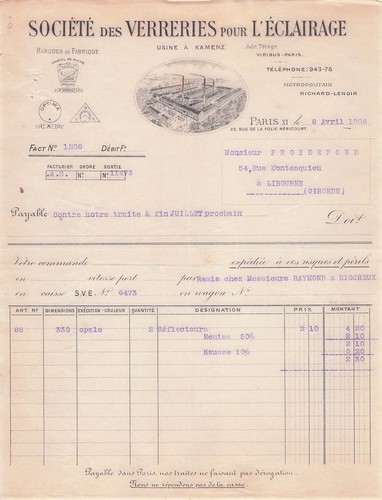 SOCIÉTÉ DES VERRERIES POUR L'ÉCLAIRAGE
MARQUES DE FABRIQUE
USINE À KAMENZ
VIRIBUS-PARIS.
TÉLÉPHONE: 943-76
MÉTROPOLITAIN
RICHARD-LENOIR
OPTIMA
PARIS XI le 8 Avril 1908
23, RUE DE LA FOLIE-MÉRICOURT
FACT Nº 1308 DÉBIT Fº
FACTURIER ORDRE SORTIE
Nº Nº
Monsieur FROIDEFOND
54, Rue Montesquieu
à LIBOURNE
(GIRONDE)
Payable Contre notre traite à fin JUILLET prochain
Doit
Votre commande expédiée à vos risques et périls
en vitesse port par Remis chez Messieurs RAYMOND &
en caisse S.V.E. Nº 6473 en wagon Nº
ART. Nº DIMENSIONS EXÉCUTION-COULEUR QUANTITÉ DÉSIGNATION PRIX MONTANT
86 330 opale 2 Réflecteurs 2 10 4 20
Remise 50% 2 10
2 10
Hausse 10% 0 20
2 30
Payable dans Paris, nos traites ne faisant pas dérogation.
Nous ne répondons pas de la casse.